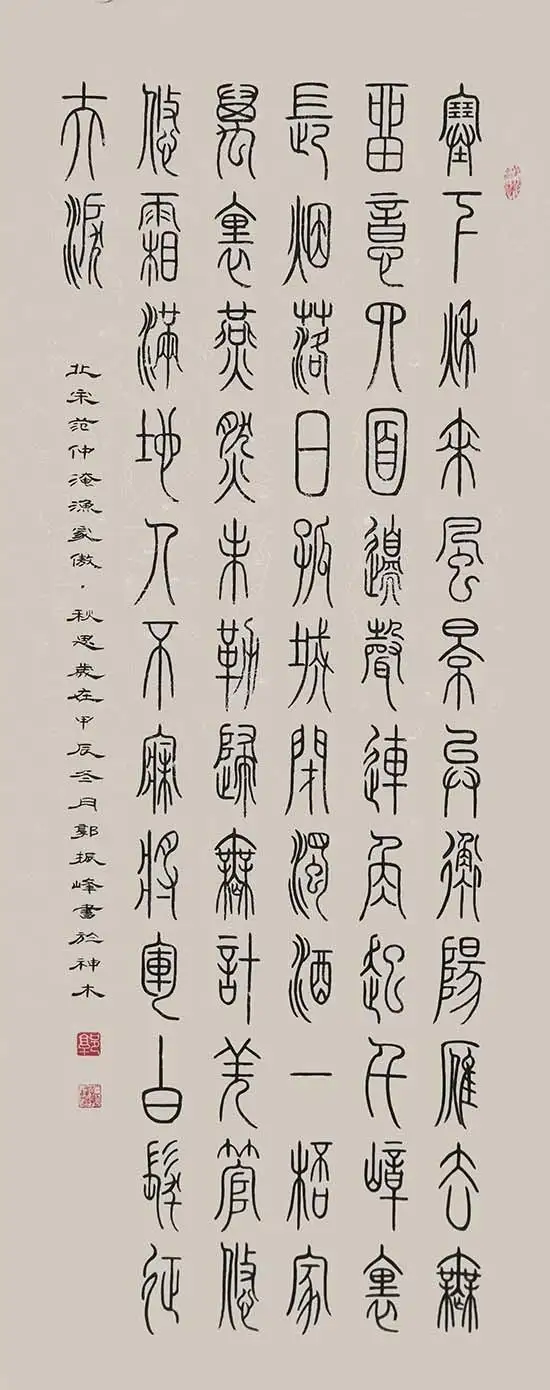 塞下秋來風景異衡陽雁去無
留意四面邊聲連角起千嶂裏
長烟落日孤城閉濁酒一桮家
萬裏燕然未勒歸無計羌管悠
悠霜滿地人不寐將軍白髮征
夫淚
北宋范仲淹漁家傲·秋思歲在甲辰冬月郭振峰書於神木